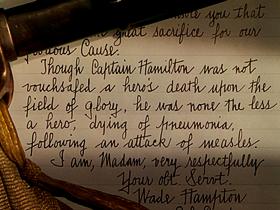 you that
great sacrifice for our
Cause.
Though Captain Hamilton was not
vouchsafed a hero's death upon the
field of glory, he was none the less
a hero, dying of pneumonia,
following an attack of measles.
I am, Madam, very respectfully
Your obt. Servt.
Wade Hampton